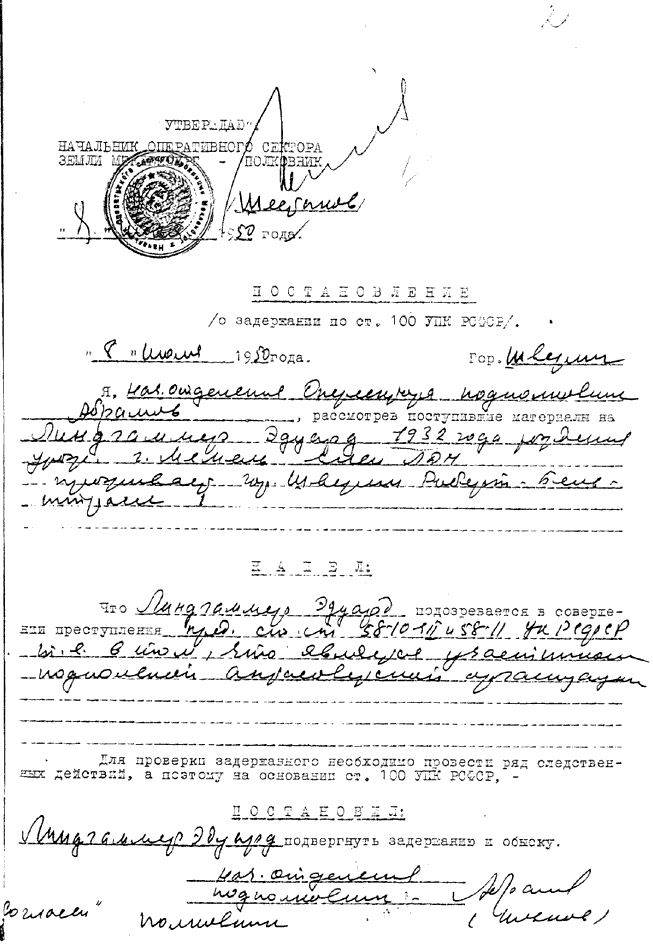 2
УТВЕРЖДАЮ".
НАЧАЛЬНИК ОПЕРАТИВНОГО СЕКТОРА
ЗЕМЛИ - ПОЛКОВНИК
" 8. " 1950 года.
ПОСТАНОВЛЕНИЕ
/о задержании по ст. 100 УПК РСФСР/.
" 8 " июля 1950 года. Гор. Шверин
Я, нач. отделения Оперсектора подполковник
Абрамов, рассмотрев поступившие материалы на
Линдгаммер Эдуард 1932 года рождения
урож. г. Мемель член ЛДП
проживает гор. Шверин Роберт-
штрасе 1
НАШЕЛ:
Что Линдгаммер Эдуард подозревается в соверше-
нии преступления пред. ст. ст 58-10 и 58-11 УК РСФСР
т.е. в том, что является участником
подпольной антисоветской организации
Для проверки задержанного необходимо провести ряд следствен-
ных действий, а поэтому на основании ст. 100 УПК РСФСР, -
ПОСТАНОВИЛ:
Линдгаммер Эдуард подвергнуть задержанию и обыску.
нач. отделения
подполковник - Абрамов
"Согласен"
полковник